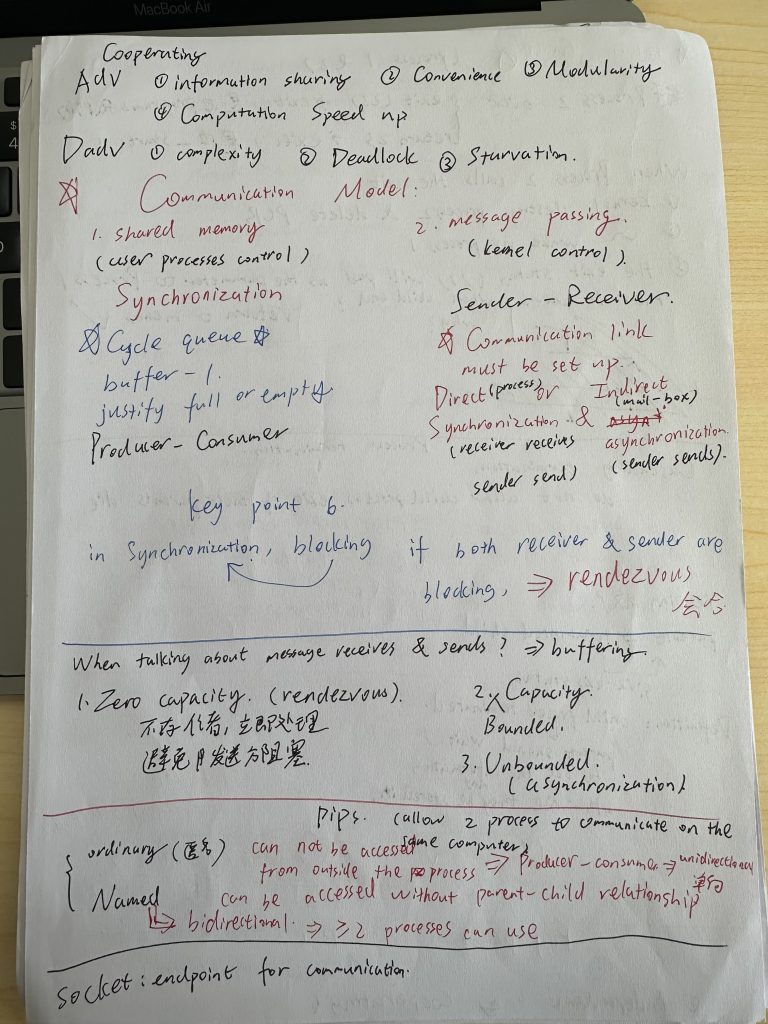 MacBook Air
Cooperating
Adv ① information sharing ② Convenience ③ Modularity
④ Computation Speed up
Dadv ① complexity ② Deadlock ③ Starvation.
☆ Communication Model:
1. shared memory
(user processes control)
Synchronization
☆ Cycle queue ☆
buffer-1.
justify full or empty.
Producer-Consumer
2. message passing.
(kernel control).
Sender - Receiver.
☆ Communication link
must be set up.
Direct (process) or Indirect
(mail-box)
Synchronization & asynchronization
(receiver receives
sender send)
(sender sends).
key point 6.
in Synchronization, blocking if both receiver & sender are
blocking, ⇒ rendezvous
会合
When talking about message receives & sends? ⇒ buffering
1. Zero capacity. (rendezvous).
不存信者, 立即处理
避免发送方阻塞.
2. Capacity.
Bounded.
3. Unbounded.
(asynchronization)
Pips. (allow 2 process to communicate on the
same computer)
ordinary (匿名) can not be accessed
from outside the process ⇒ Producer-consumer ⇒ unidirectional
单向
Named can be accessed without parent-child relationship
↳ bidirectional. ⇒ ≥2 processes can use
socket: endpoint for communication.